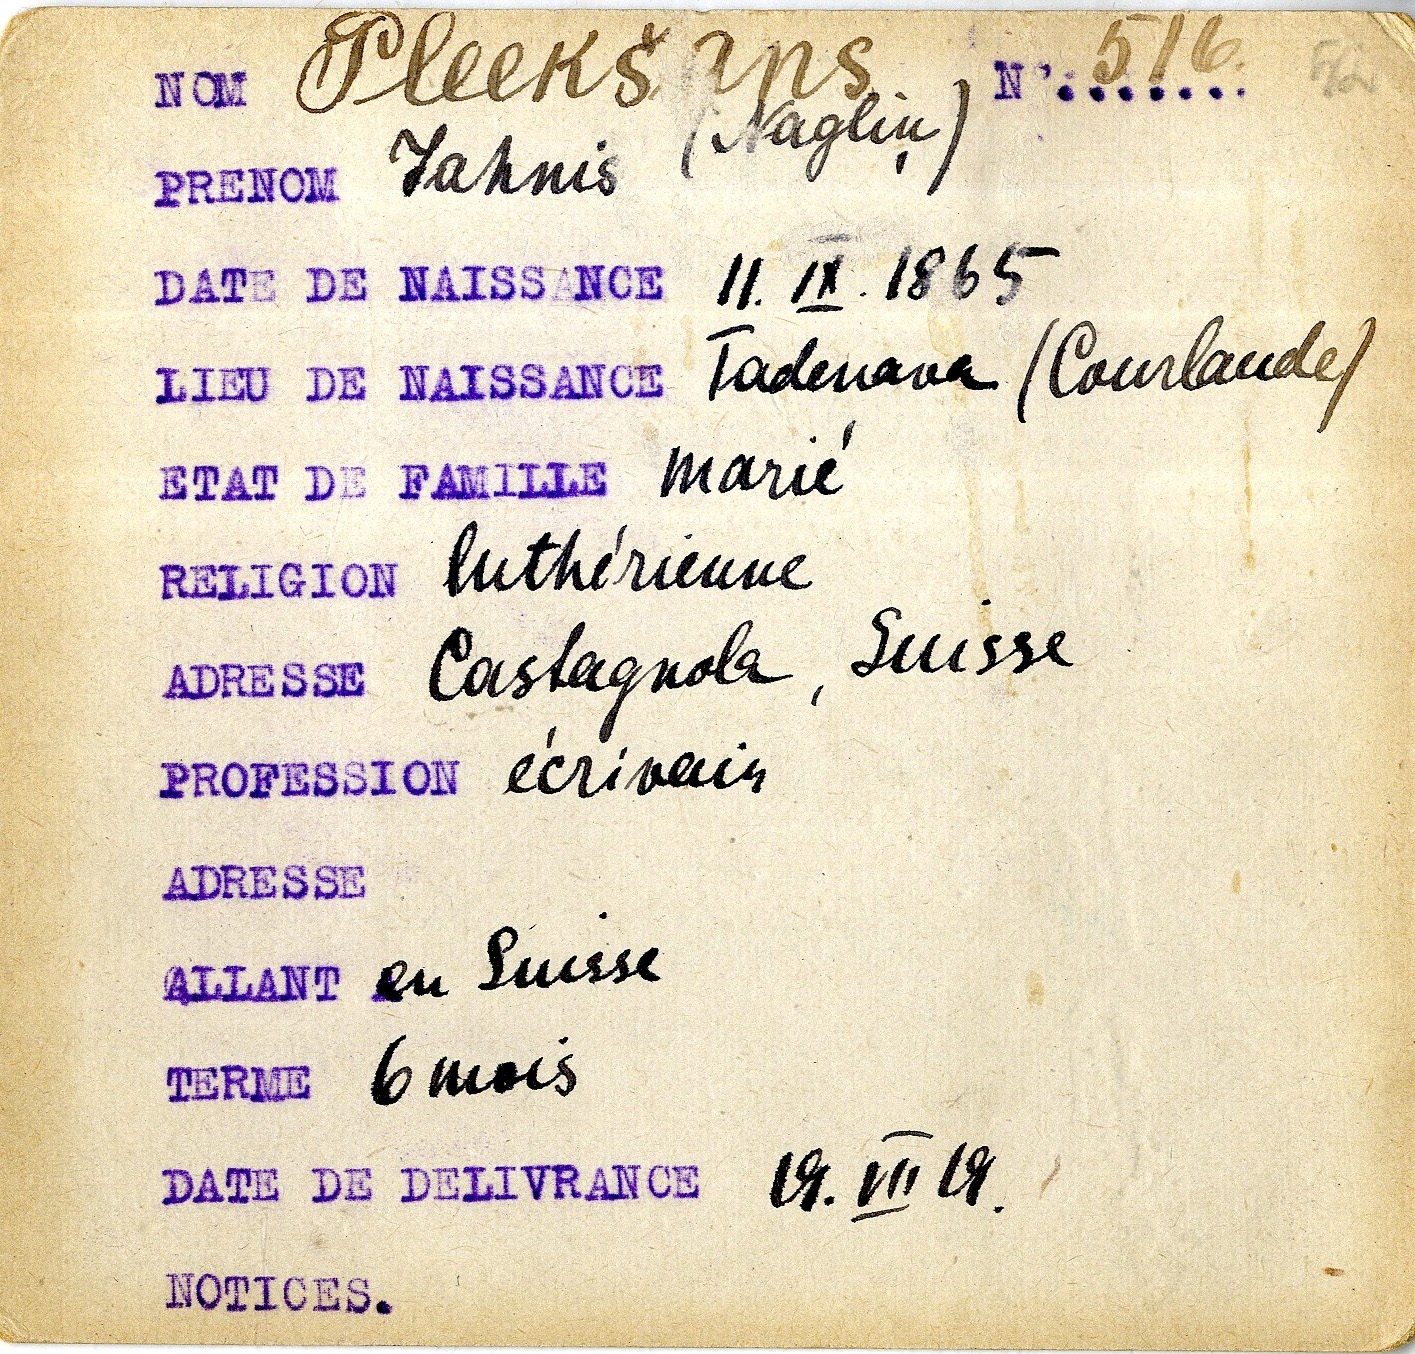 NOM Pleekšans N°:....... 516.
PRENOM Jahnis (Nagliņ)
DATE DE NAISSANCE 11. IX. 1865
LIEU DE NAISSANCE Tadenava (Courlande)
ETAT DE FAMILLE marié
RELIGION luthérienne
ADRESSE Castagnola, Suisse
PROFESSION écrivain
ADRESSE
ALLANT en Suisse
TERME 6 mois
DATE DE DELIVRANCE 19. VII 19.
NOTICES.